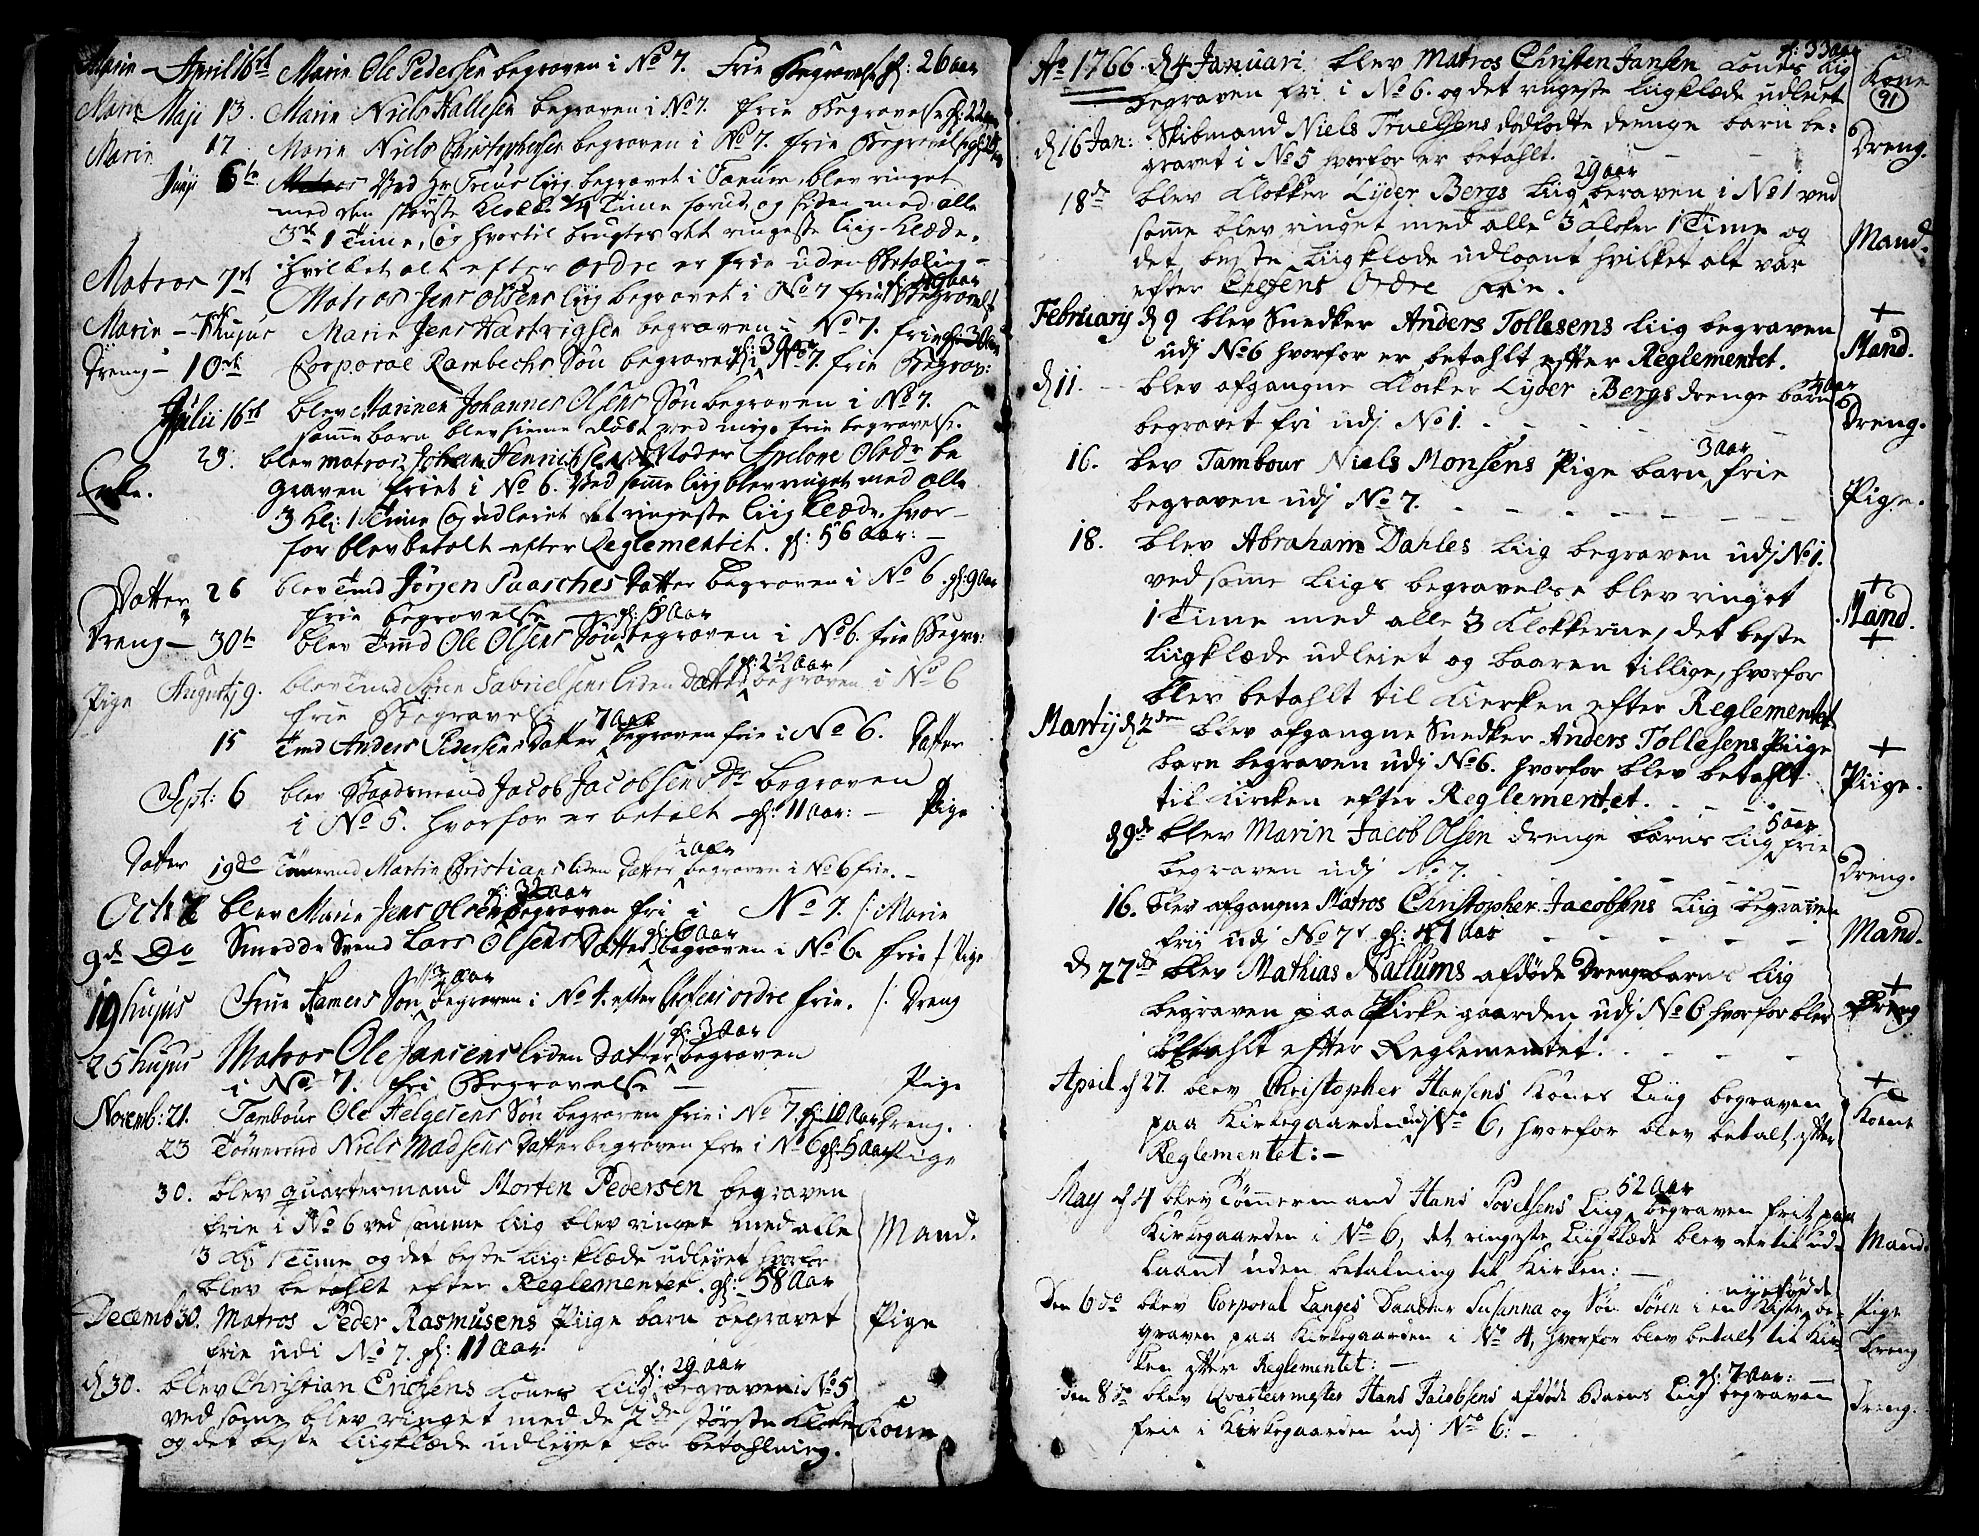 Marin - April 16de Marin Ole Pedersen begraven i No 7. Frie Begravelse gl: 26 aar
Marin Maji 13. Marin Niels Hallesen begraven i No 7. frie Begravelse gl: 22
Marin 17 Marin Niels Christophersen begraven i No 7. frie Begravelse
Juni 6te Ved Hr liig begravet i blev ringet
med den störste Klokke 1/4 Time forud og siden med alle
3de 1 Time, og hvortil brugtes det ringeste liig-Klæde.
hvilket alt efter ordre er frie uden Betaling -
Matros 7de Matros Jens Olsens liig begravet i No 7 frie Begravels
Marin - hujus Marin Jens Hartvigsen begraven i No 7. frie gl: 30
Dreng - 10de Corporal Rambechs Sön begravet i No 7. frie Begrav:
gl: 3 Aar
Julii 16de blev Marinen Johannes Olsens Sön begraven i No 7.
samme barn blev hieme döbt frie begravelse.
Enke. 29. blev matros Johan Henrichsens Moder Olsdr be
graven friet i No 6. Ved samme liig blev ringet med alle
3 Kl: 1 Time og udleiet det ringeste liig klæde, hvor-
for blev betalt efter Reglementet. gl: 56 Aar: -
Datter 26 blev Tmd Jörgen Paasches Datter begraven i No 6. gl: 9 Aar
frie begravelse
Dreng - 30te blev Tmd Ole Olsens Sön begraven i No 6. frie Begrav:
gl: 5 Aar
Pige Augustj 9. blev Tmd Sören Gabrielsens liden Datter begraven i No 6
gl: 2 1/2 Aar
frie Begravelse
15 Tmd Anders Pedersens Datter begraven frie i No 6. Datter
7 Aar
Sept: 6 blev Baadsmand Jacob Jacobsens Dr begraven
i No 5. hvorfor er betalt gl: 11 aar: - Pige
Datter 19do Tömermd Martin Christians liden Datter begraven i No 6 frie. -
Octb blev Marin Jens Olsen begraven fri i No 7. /: Marin
9de Do Smedde Svend Lars Olsens Datter begraven i No 6. frie /: Pige
gl: 6 aar
19 hujus Frue Hamers Sön begraven i No 4. efter Chefens ordre frie. /: Dreng
3/4 aar
25 hujus Matros Ole Jansens liden Datter begraven
gl: 3 Aar
i No 7. fri Begravelse - Pige
Novemb: 21. Tambour Ole Helgesens Sön begraven frie i No 7. gl: 10 Aar Dreng.
23 Tömermd Niels Madsens Datter begraven frie i No 6 gl: 5 Aar Pige
30. blev quartermand Morten Pedersen begraven
frie i No 6 ved samme liig blev ringet med alle Mand.
3 Kl: 1 Time og det beste liig-klæde udleyet hvorfor
blev betahlt efter Reglementet. gl: 58 Aar
Decemb 30. Matros Peder Rasmusens Piige barn begravet Pige
frie udi No 7. gl: 11 Aar:
d 30. blev Christian Erichsens Kones liig begraven i No 5
gl: 29 aar
ved samme blev ringet med de 2de störste Kloker Kone
og det beste liigklæde udleyet for betahlning.
Ao 1766. d 4 Januari blev Matros Christen Jansen Kones liig Kone
gl: 33 aar
91
begraven fri i No 6. og det ringeste liigklæde udleiet
d 16 Jan: Skibmand Niels Truelsens dödfödte drenge barn be: Dreng.
gravet i No 5 hvorfor er betahlt.
18de blev Klokker Lyder Bergs Liig begraven i No 1 ved
29 aar
samme blev ringet med alle 3 Kloker 1 Time og Mand.
det beste Liigklæde udlaant hvilket alt var
efter Chefens Ordre frie.
February d 9 blev Snedker Anders Tollesens Liig begraven
udj No 6 hvorfor er betahlt efter Reglementet. Mand.
d 11. - blev afgangne Klocker Lyder Bergs drenge barn
4 aar
begravet fri udj No 1. Dreng.
16. blev Tambour Niels Monsens Pige barn frie
3 aar
begraven udj No 7. Pige.
18. blev Abraham Dahles Liig begraven udj No 1.
ved samme Liigs begravelse blev ringet
1 Time med alle 3 Klokkerne, det beste Mand.
Liigklæde udleiet og baaren tillige, hvorfor
blev betahlt til Kierken efter Reglementet
Martij d 2den blev afgangne Snedker Anders Tollesens Piige
barn begraven udj No 6. hvorfor blev betahlt Piige.
til Kirken efter Reglementet.
d 9de blev Marin Jacob Olsen drenge barns Liig frie
5 aar
begraven udj No 7. Dreng.
16. blev afgangne Matros Christopher Jacobsens Liig begraven
frii udj No 7 gl: 41 Aar Mand.
d 27de blev Mathias Nallums afdöde Drengebarns Liig
begraven paa Kirkegaarden udj No 6 hvorfor blev Dreng
betahlt efter Reglementet.
April d 27. blev Christopher Hansens Kones Liig begraven
paa Kirkegaarden udj No 6, hvorfor blev betalt efter Kone
Reglementet: -
May d 4 blev Tömmermand Hans Povelsens Liig begraven frit paa
52 Aar
Kirkegaarden i No 6, det ringeste Liigklæde blev dertil ud- Mand.
laant uden betalning til Kirken: -
Den 6do blev Corporal Langes Daatter Susanna og Sön Sören i en Kiste be- Pige
nyefödde
graven paa Kirkegaarden i No 4, hvorfor blev betalt til Kir- Dreng
ken efter Reglementet: -
den 8do blev Qvarteermester Hans Jacobsens afdöde Barns Liig begraven Dreng.
gl: 7 aar:
frie i Kirkegaarden udj No 6: -